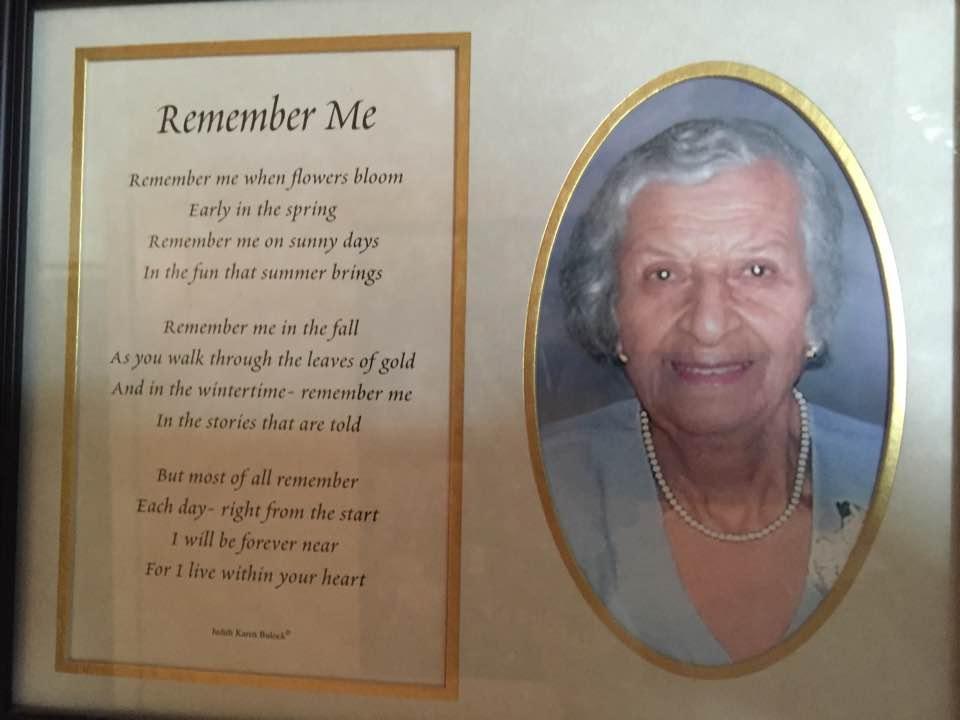 Remember Me
Remember me when flowers bloom
Early in the spring
Remember me on sunny days
In the fun that summer brings
Remember me in the fall
As you walk through the leaves of gold
And in the wintertime- remember me
In the stories that are told
But most of all remember
Each day- right from the start
I will be forever near
For I live within your heart
Judith Karen Bulock©